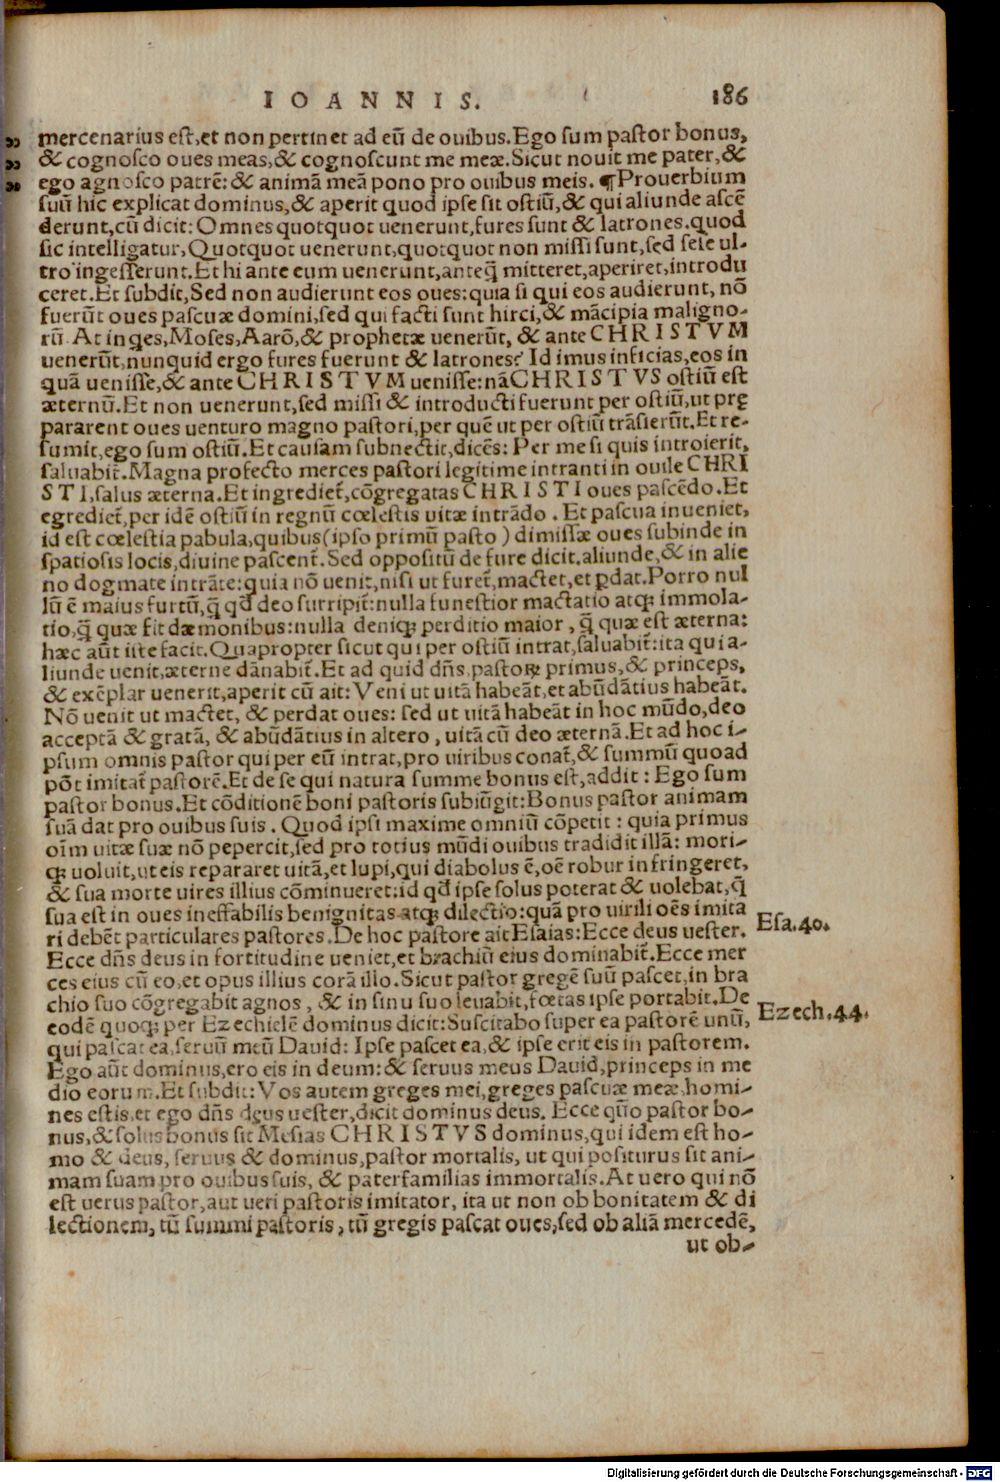 IOANNIS. 186
mercenarius est, et non pertinet ad eū de ouibus. Ego sum pastor bonus,
& cognosco oues meas, & cognoscunt me meæ. Sicut nouit me pater, &
ego agnosco patrē: & animā meā pono pro ouibus meis. ¶ Prouerbium
suū hic explicat dominus, & aperit quod ipse sit ostiū, & qui aliunde ascē
derunt, cū dicit: Omnes quotquot uenerunt, fures sunt & latrones. quod
sic intelligatur, Quotquot uenerunt, quotquot non missi sunt, sed sese ul-
tro ingesserunt. Et hi ante eum uenerunt, anteq̄ mitteret, aperiret, introdu
ceret. Et subdit, Sed non audierunt eos oues: quia si qui eos audierunt, nō
fuerūt oues pascuæ domini, sed qui facti sunt hirci, & mācipia maligno-
rū. At inqes, Moses, Aarō, & prophetæ uenerūt, & ante CHRISTVM
uenerūt, nunquid ergo fures fuerunt & latrones? Id imus inficias, eos in
quā uenisse, & ante CHRISTVM uenisse: nā CHRISTVS ostiū est
æternū. Et non uenerunt, sed missi & introducti fuerunt per ostiū, ut prę
pararent oues uenturo magno pastori, per quē ut per ostiū trāsierūt. Et re-
sumit, ego sum ostiū. Et causam subnectit, dicēs: Per me si quis introierit,
saluabit̃. Magna profecto merces pastori legitime intranti in ouile CHRI
STI, salus æterna. Et ingrediet̃, cōgregatas CHRISTI oues pascēdo. Et
egrediet̃, per idē ostiū in regnū cœlestis uitæ intrādo. Et pascua inueniet,
id est cœlestia pabula, quibus (ipso primū pasto) dimissæ oues subinde in
spatiosis locis, diuine pascent̃. Sed oppositū de fure dicit. aliunde, & in alie
no dogmate intrāte: quia nō uenit, nisi ut furet̃, mactet, et ꝑdat. Porro nul
lū ē maius furtū, q̄ qd̄ deo surripit̃: nulla funestior mactatio atqꝫ immola-
tio, q̄ quæ fit dæmonibus: nulla deniqꝫ perditio maior, q̄ quæ est æterna:
hæc aūt iste facit. Quapropter sicut qui per ostiū intrat, saluabit̃: ita qui a-
liunde uenit, æterne dānabit̃. Et ad quid dn̄s, pastoꝝ primus, & princeps,
& exēplar uenerit, aperit cū ait: Veni ut uitā habeāt, et abūdātius habeāt.
Nō uenit ut mactet, & perdat oues: sed ut uitā habeāt in hoc mūdo, deo
acceptā & gratā, & abūdātius in altero, uitā cū deo æternā. Et ad hoc i-
psum omnis pastor qui per eū intrat, pro uiribus conat̃, & summū quoad
pōt imitat̃ pastorē. Et de se qui natura summe bonus est, addit: Ego sum
pastor bonus. Et cōditionē boni pastoris subiūgit: Bonus pastor animam
suā dat pro ouibus suis. Quod ipsi maxime omniū cōpetit: quia primus
oīm uitæ suæ nō pepercit, sed pro totius mūdi ouibus tradidit illā: mori-
qꝫ uoluit, ut eis repararet uitā, et lupi, qui diabolus ē, oē robur infringeret,
& sua morte uires illius cōminueret: id qd̄ ipse solus poterat & uolebat, q̄
sua est in oues ineffabilis benignitas atqꝫ dilectio: quā pro uirili oēs imita
ri debēt particulares pastores. De hoc pastore ait Esaias: Ecce deus uester. Esa.40.
Ecce dn̄s deus in fortitudine ueniet, et brachiū eius dominabit̃. Ecce mer
ces eius cū eo, et opus illius corā illo. Sicut pastor gregē suū pascet, in bra
chio suo cōgregabit agnos, & in sinu suo leuabit, fœtas ipse portabit. De
eodē quoqꝫ per Ezechielē dominus dicit: Suscitabo super ea pastorē unū, Ezech.44.
qui pascat ea, seruū meū Dauid: Ipse pascet ea, & ipse erit eis in pastorem.
Ego aūt dominus, ero eis in deum: & seruus meus Dauid, princeps in me
dio eorum. Et subdit: Vos autem greges mei, greges pascuæ meæ, homi-
nes estis, et ego dn̄s deus uester, dicit dominus deus. Ecce quō pastor bo-
nus, & solus bonus sit Mesias CHRISTVS dominus, qui idem est ho-
mo & deus, seruus & dominus, pastor mortalis, ut qui positurus sit ani-
mam suam pro ouibus suis, & paterfamilias immortalis. At uero qui nō
est uerus pastor, aut ueri pastoris imitator, ita ut non ob bonitatem & di
lectionem, tū summi pastoris, tū gregis pascat oues, sed ob aliā mercedē,
ut ob-
Digitalisierung gefördert durch die Deutsche Forschungsgemeinschaft - DFG